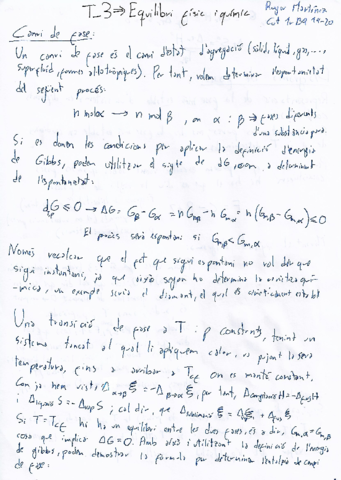 T_3 ⇒ Equilibri físic i químic
Roger
1r BQ 19-20
Canvi de fase:
Un canvi de fase és el canvi d'estat d'agregació (sòlid, líquid, gas, ...,
superfluid, formes al·lotròpiques). Per tant, volem determinar l'espontaneïtat
del següent procés:
n mol α → n mol β, on α i β → fases diferents
d'una substància pura.
Si es donen les condicions per aplicar la definició d'energia
de Gibbs, podem utilitzar el signe de dG, com a determinant
de l'espontaneïtat:
dG ≤ 0 → ΔG = Gβ - Gα = n Gm,β - n Gm,α = n(Gm,β - Gm,α) ≤ 0
El procés serà espontani si Gm,β < Gm,α
Només recalcar que el fet que sigui espontani no vol dir que
sigui instantani, ja que això segons ho determina la cinètica quí-
mica, un exemple seria el diamant, el qual és cinèticament estable
Una transició de fase a T i p constants, tenint un
sistema tancat al qual li apliquem calor, va pujant la seva
temperatura, fins a arribar a Tcf on es manté constant.
Com ja hem vist Δα→β ξ = -Δβ→α ξ, per tant,
i S = - S; cal dir, que Δ ξ = Δ ξ + Δ ξ
Si T = Tcf hi ha un equilibri entre les dues fases, és a dir, Gm,α = Gm,β
cosa que implica ΔG = 0. Amb això i utilitzant la definició de l'energia
de Gibbs, podem demostrar la fórmula per determinar l'entalpia de canvi
de fase: